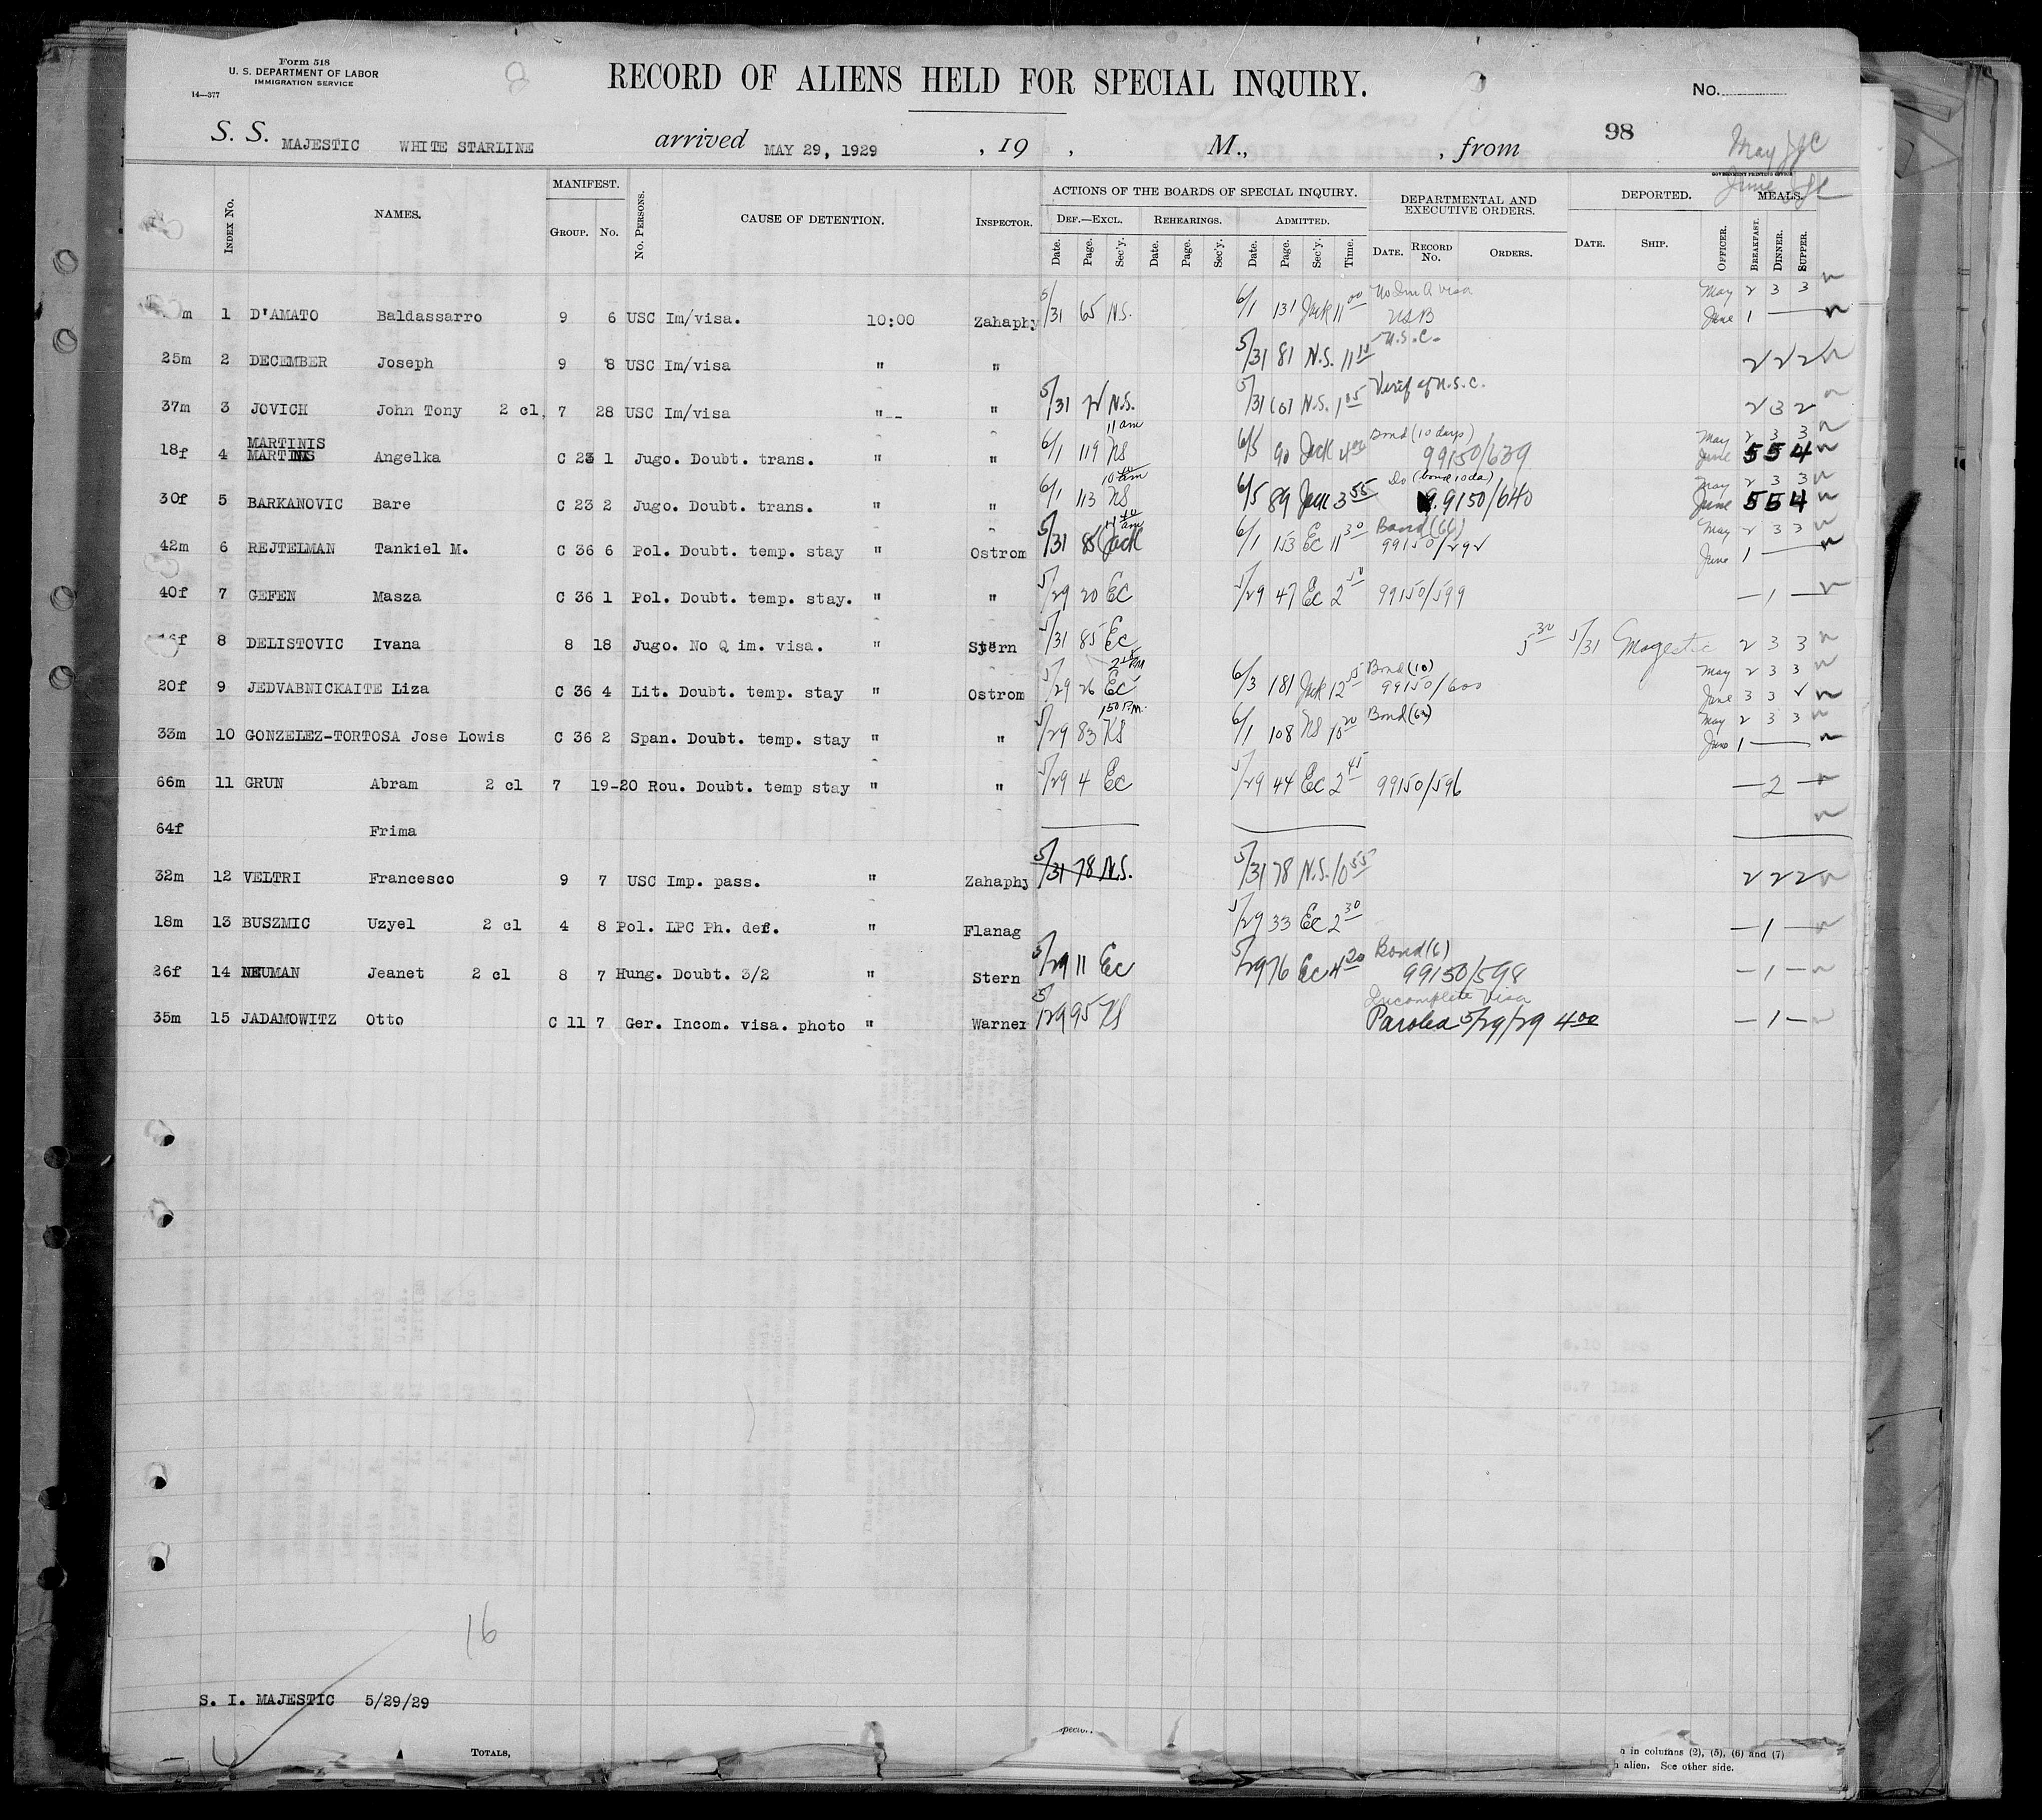 Form 518
U. S. DEPARTMENT OF LABOR
IMMIGRATION SERVICE
14—377
RECORD OF ALIENS HELD FOR SPECIAL INQUIRY.
No.
98
S. S. MAJESTIC WHITE STARLINE arrived MAY 29, 1929 , 19 , M., , from
May
June
GOVERNMENT PRINTING OFFICE
Index No. NAMES. MANIFEST. Group. No. No. Persons. CAUSE OF DETENTION. Inspector. ACTIONS OF THE BOARDS OF SPECIAL INQUIRY. Def.—Excl. Date. Page. Sec'y. Rehearings. Date. Page. Sec'y. Admitted. Date. Page. Sec'y. Time. DEPARTMENTAL AND EXECUTIVE ORDERS. Date. Record No. Orders. DEPORTED. Date. Ship. Officer. MEALS. Breakfast. Dinner. Supper.
m 1 D'AMATO Baldassarro 9 6 USC Im/visa. 10:00 Zahaphy 5/31 65 N.S. 6/1 131 Jack 11 00 May 2 3 3 June 1 —
25m 2 DECEMBER Joseph 9 8 USC Im/visa " " 5/31 81 N.S. 11 10 U.S.C. 2 2 2
37m 3 JOVICH John Tony 2 cl, 7 28 USC Im/visa " " 5/31 N.S. 5/31 101 N.S. 1 05 Verif of U.S.C. 2 3 2
MARTINIS
18f 4 Angelka C 23 1 Jugo. Doubt. trans. " " 6/1 119 NS 11 am 6/5 90 Jack 4 00 Bond (10 days) 99150/639 May 2 3 3 June 5 5 4
30f 5 BARKANOVIC Bare C 23 2 Jugo. Doubt. trans. " " 6/1 113 NS 6/5 89 3 55 Do (bond 10 da) 99150/640 May 2 3 3 June 5 5 4
42m 6 REJTELMAN Tankiel M. C 36 6 Pol. Doubt. temp. stay " Ostrom 5/31 85 Jack 6/1 153 Ec 11 30 Bond 99150/292 May 2 3 3 June 1 —
40f 7 GEFEN Masza C 36 1 Pol. Doubt. temp. stay. " " 5/29 20 Ec 5/29 47 Ec 2 50 99150/599 — 1 —
f 8 DELISTOVIC Ivana 8 18 Jugo. No Q im. visa. " Stern 5/31 85 Ec 5 30 5/31 Magestic 2 3 3
20f 9 JEDVABNICKAITE Liza C 36 4 Lit. Doubt. temp. stay " Ostrom 5/29 26 Ec 6/3 181 Jack 12 55 Bond (10) 99150/600 May 2 3 3 June 3 3 2
33m 10 GONZELEZ-TORTOSA Jose Lowis C 36 2 Span. Doubt. temp. stay " " 5/29 83 NS 1 50 P.M. 6/1 108 NS 10 20 Bond May 2 3 3 June 1 —
66m 11 GRUN Abram 2 cl 7 19-20 Rou. Doubt. temp stay " " 5/29 4 Ec 5/29 44 Ec 2 45 99150/596 — 2 —
64f Frima
32m 12 VELTRI Francesco 9 7 USC Imp. pass. " Zahaphy 5/31 78 N.S. 5/31 78 N.S. 10 55 2 2 2
18m 13 BUSZMIC Uzyel 2 cl 4 8 Pol. LPC Ph. def. " Flanag 5/29 33 Ec 2 30 — 1 —
26f 14 NEUMAN Jeanet 2 cl 8 7 Hung. Doubt. 3/2 " Stern 5/29 11 Ec 5/29 76 Ec 4 20 Bond (6) 99150/598 — 1 —
35m 15 JADAMOWITZ Otto C 11 7 Ger. Incom. visa. photo " Warner 5/29 95 NS Incomplete Visa Paroled 5/29/29 4 00 — 1 —
16
S. I. MAJESTIC 5/29/29
Totals,
in columns (2), (5), (6) and (7)
alien. See other side.